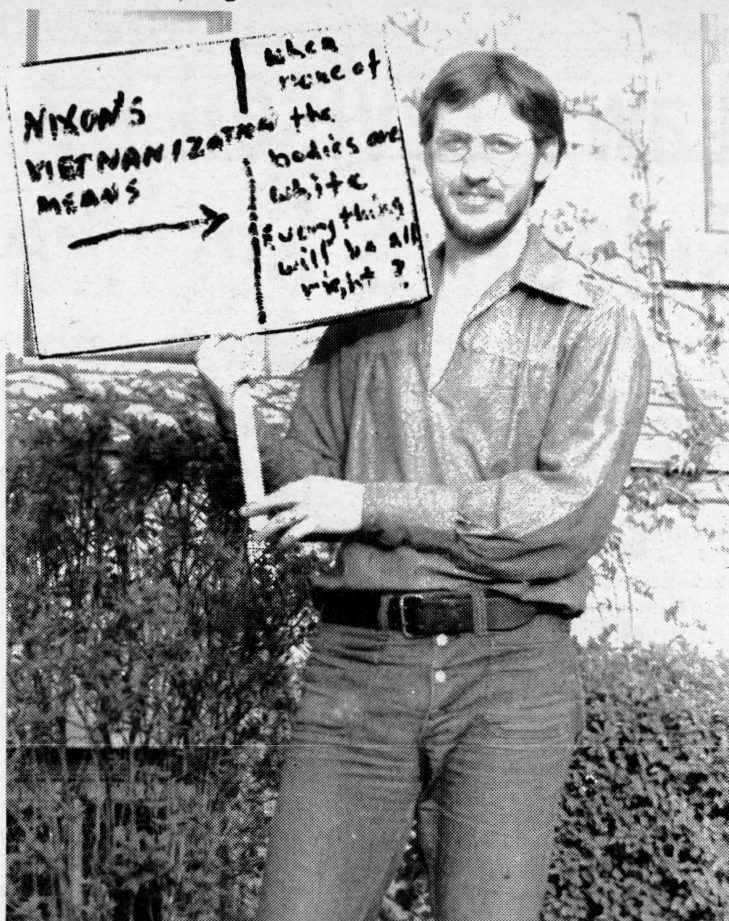 NIXON'S
VIETNAMIZATION
MEANS
when
none of
the
bodies are
white
Everything
will be all
right?